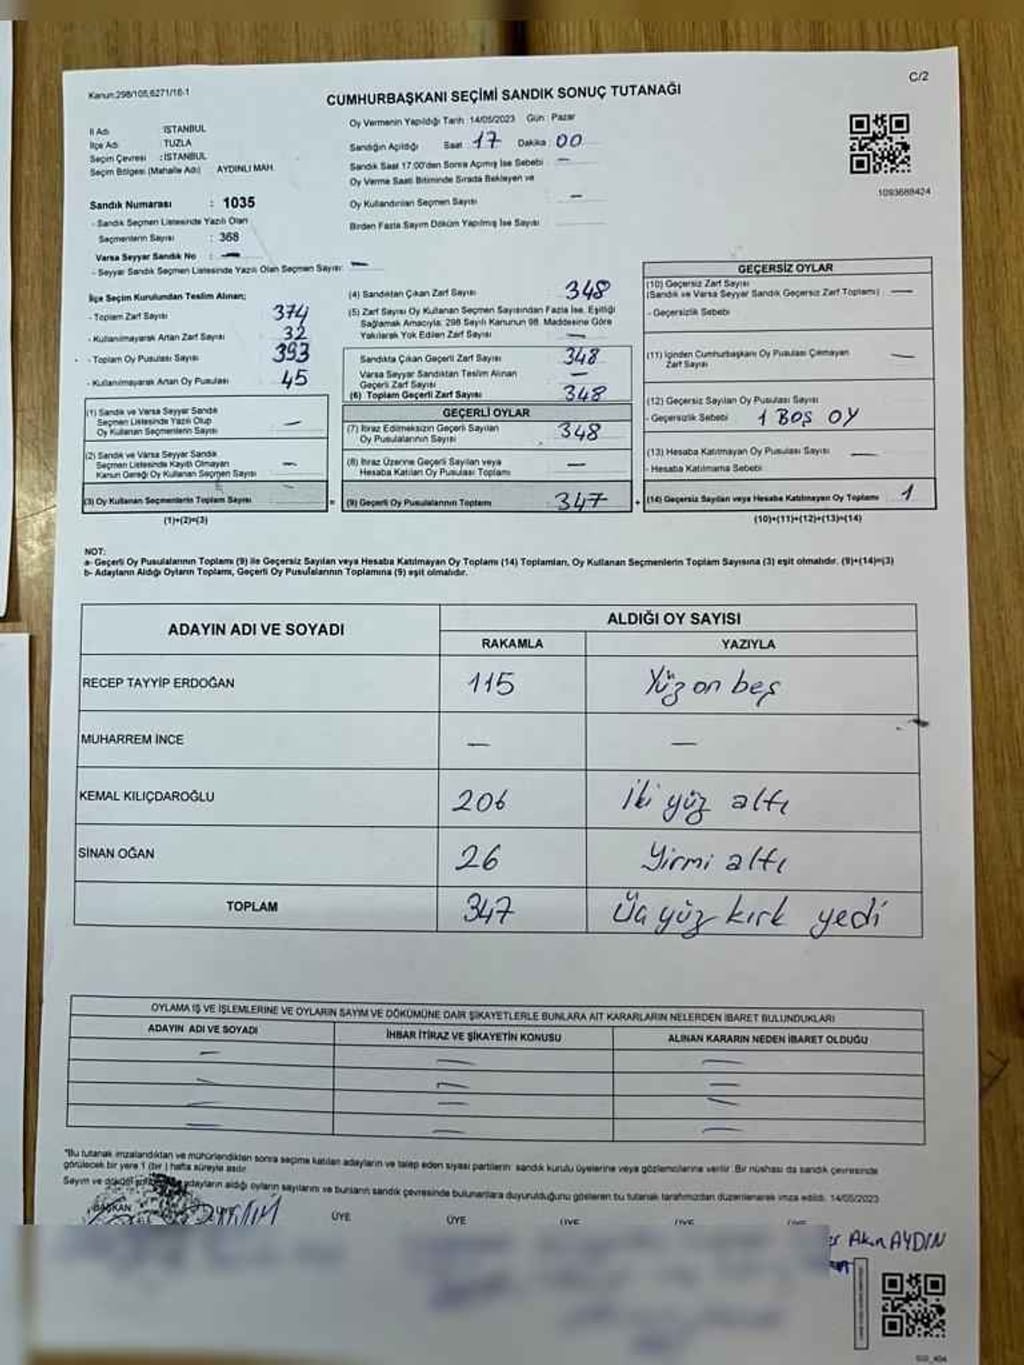 Kanun:298/105,6271/16-1
C/2
CUMHURBAŞKANI SEÇİMİ SANDIK SONUÇ TUTANAĞI
İl Adı : İSTANBUL
İlçe Adı : TUZLA
Seçim Çevresi : İSTANBUL
Seçim Bölgesi (Mahalle Adı) : AYDINLI MAH.
Sandık Numarası : 1035
- Sandık Seçmen Listesinde Yazılı Olan
Seçmenlerin Sayısı : 368
Varsa Seyyar Sandık No : —
- Seyyar Sandık Seçmen Listesinde Yazılı Olan Seçmen Sayısı: —
Oy Vermenin Yapıldığı Tarih :14/05/2023 Gün : Pazar
Sandığın Açıldığı Saat 17 Dakika : 00
Sandık Saat 17:00'den Sonra Açılmış İse Sebebi : —
Oy Verme Saati Bitiminde Sırada Bekleyen ve
Oy Kullandırılan Seçmen Sayısı —
Birden Fazla Sayım Döküm Yapılmış İse Sayısı
1093688424
İlçe Seçim Kurulundan Teslim Alınan;
- Toplam Zarf Sayısı 374
- Kullanılmayarak Artan Zarf Sayısı 32
- Toplam Oy Pusulası Sayısı 393
- Kullanılmayarak Artan Oy Pusulası 45
(1) Sandık ve Varsa Seyyar Sandık
Seçmen Listesinde Yazılı Olup
Oy Kullanan Seçmenlerin Sayısı —
(2) Sandık ve Varsa Seyyar Sandık
Seçmen Listesinde Kayıtlı Olmayan
Kanun Gereği Oy Kullanan Seçmen Sayısı —
(3) Oy Kullanan Seçmenlerin Toplam Sayısı
(1)+(2)=(3)
(4) Sandıktan Çıkan Zarf Sayısı 348
(5) Zarf Sayısı Oy Kullanan Seçmen Sayısından Fazla İse, Eşitliği
Sağlamak Amacıyla; 298 Sayılı Kanunun 98. Maddesine Göre
Yakılarak Yok Edilen Zarf Sayısı —
Sandıkta Çıkan Geçerli Zarf Sayısı 348
Varsa Seyyar Sandıktan Teslim Alınan
Geçerli Zarf Sayısı —
(6) Toplam Geçerli Zarf Sayısı 348
GEÇERLİ OYLAR
(7) İtiraz Edilmeksizin Geçerli Sayılan
Oy Pusulalarının Sayısı 348
(8) İtiraz Üzerine Geçerli Sayılan veya
Hesaba Katılan Oy Pusulası Toplamı —
= (9) Geçerli Oy Pusulalarının Toplamı 347
GEÇERSİZ OYLAR
(10) Geçersiz Zarf Sayısı
(Sandık ve Varsa Seyyar Sandık Geçersiz Zarf Toplamı) —
- Geçersizlik Sebebi
(11) İçinden Cumhurbaşkanı Oy Pusulası Çıkmayan
Zarf Sayısı —
(12) Geçersiz Sayılan Oy Pusulası Sayısı
- Geçersizlik Sebebi 1 BOŞ OY
(13) Hesaba Katılmayan Oy Pusulası Sayısı —
- Hesaba Katılmama Sebebi
+ (14) Geçersiz Sayılan veya Hesaba Katılmayan Oy Toplamı 1
(10)+(11)+(12)+(13)=(14)
NOT:
a- Geçerli Oy Pusulalarının Toplamı (9) ile Geçersiz Sayılan veya Hesaba Katılmayan Oy Toplamı (14) Toplamları, Oy Kullanan Seçmenlerin Toplam Sayısına (3) eşit olmalıdır. (9)+(14)=(3)
b- Adayların Aldığı Oyların Toplamı, Geçerli Oy Pusulalarının Toplamına (9) eşit olmalıdır.
ADAYIN ADI VE SOYADI
ALDIĞI OY SAYISI
RAKAMLA YAZIYLA
RECEP TAYYİP ERDOĞAN 115 Yüz on beş
MUHARREM İNCE — —
KEMAL KILIÇDAROĞLU 206 İki yüz altı
SİNAN OĞAN 26 Yirmi altı
TOPLAM 347 Üç yüz kırk yedi
OYLAMA İŞ VE İŞLEMLERİNE VE OYLARIN SAYIM VE DÖKÜMÜNE DAİR ŞİKAYETLERLE BUNLARA AİT KARARLARIN NELERDEN İBARET BULUNDUKLARI
ADAYIN ADI VE SOYADI İHBAR İTİRAZ VE ŞİKAYETİN KONUSU ALINAN KARARIN NEDEN İBARET OLDUĞU
— — —
— — —
— — —
— — —
*Bu tutanak imzalandıktan ve mühürlendikten sonra seçime katılan adayların ve talep eden siyasi partilerin sandık kurulu üyelerine veya gözlemcilerine verilir. Bir nüshası da sandık çevresinde
görülecek bir yere 1 (bir) hafta süreyle asılır.
Sayım ve döküm adayların aldığı oyların sayılarını ve bunların sandık çevresinde bulunanlara duyurulduğunu gösteren bu tutanak tarafımızdan düzenlenerek imza edildi. 14/05/2023
BAŞKAN ÜYE ÜYE ÜYE ÜYE ÜYE
Akın AYDIN